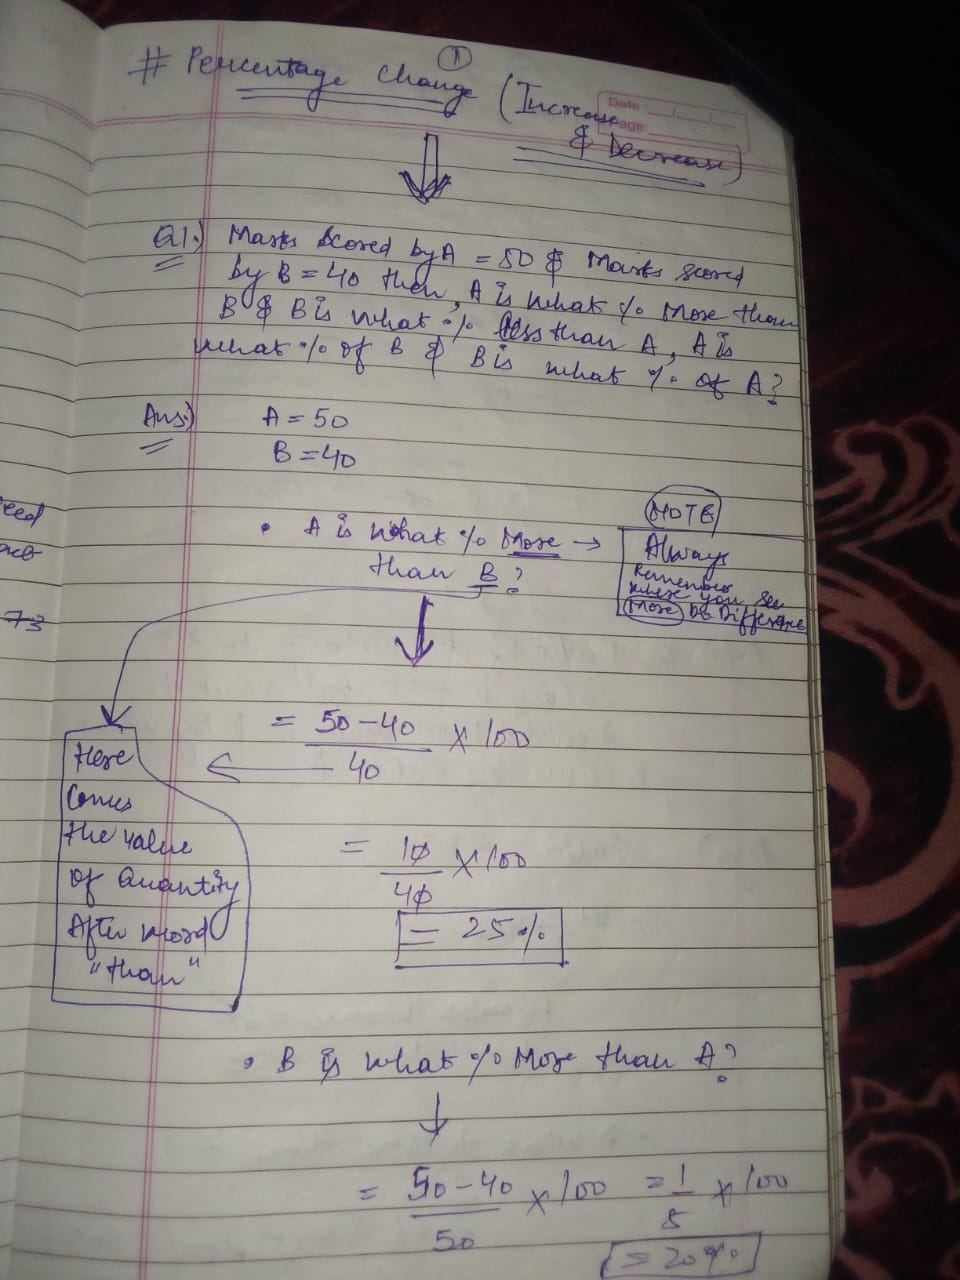 ①
# Percentage Change (Increase
& Decrease)
Date : / /
Page:
Q1.) Marks Scored by A = 50 & Marks scored
by B = 40 then, A is what % More than
B & B is what % less than A, A is
what % of B & B is what % of A?
Ans.) A = 50
B = 40
• A is what % More →
than B?
NOTE
Always
Remember
where you see
More Do Difference
eed
73
= 50 - 40 / 40 × 100
Here
Comes
the value
of Quantity
After word
"than"
= 10 / 40 × 100
= 25%
• B is what % More than A?
= 50 - 40 / 50 × 100 = 1 / 5 × 100
= 20%